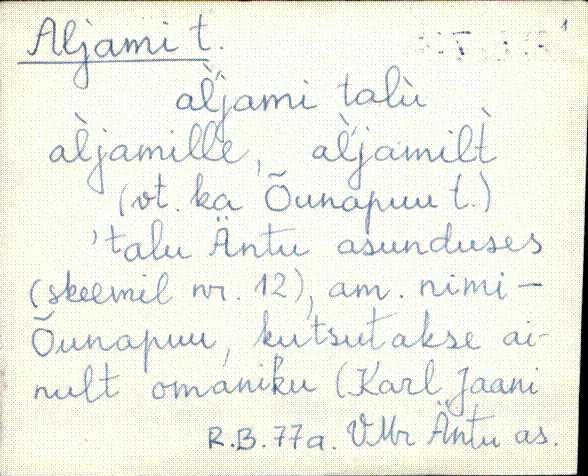 Aljami t.
1
al̀jami talu
al̀jamille, al̀jamilt̀
(vt. ka Õunapuu t.)
'talu Äntu asunduses
(skeemil nr. 12), am. nimi –
Õunapuu, kutsutakse ai-
nult omaniku (Karl Jaani
R.B. 77a. VMr Äntu as.